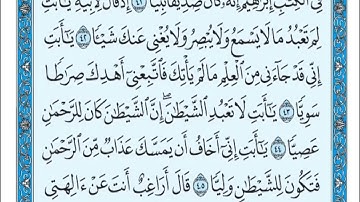 فِى ٱلْكِتَٰبِ إِبْرَٰهِيمَ إِنَّهُۥ كَانَ صِدِّيقًا نَّبِيًّا ٤١ إِذْ قَالَ لِأَبِيهِ يَٰٓأَبَتِ
لِمَ تَعْبُدُ مَا لَا يَسْمَعُ وَلَا يُبْصِرُ وَلَا يُغْنِى عَنكَ شَيْـًٔا ٤٢ يَٰٓأَبَتِ
إِنِّى قَدْ جَآءَنِى مِنَ ٱلْعِلْمِ مَا لَمْ يَأْتِكَ فَٱتَّبِعْنِىٓ أَهْدِكَ صِرَٰطًا
سَوِيًّا ٤٣ يَٰٓأَبَتِ لَا تَعْبُدِ ٱلشَّيْطَٰنَ ۖ إِنَّ ٱلشَّيْطَٰنَ كَانَ لِلرَّحْمَٰنِ
عَصِيًّا ٤٤ يَٰٓأَبَتِ إِنِّىٓ أَخَافُ أَن يَمَسَّكَ عَذَابٌ مِّنَ ٱلرَّحْمَٰنِ
فَتَكُونَ لِلشَّيْطَٰنِ وَلِيًّا ٤٥ قَالَ أَرَاغِبٌ أَنتَ عَنْ ءَالِهَتِى